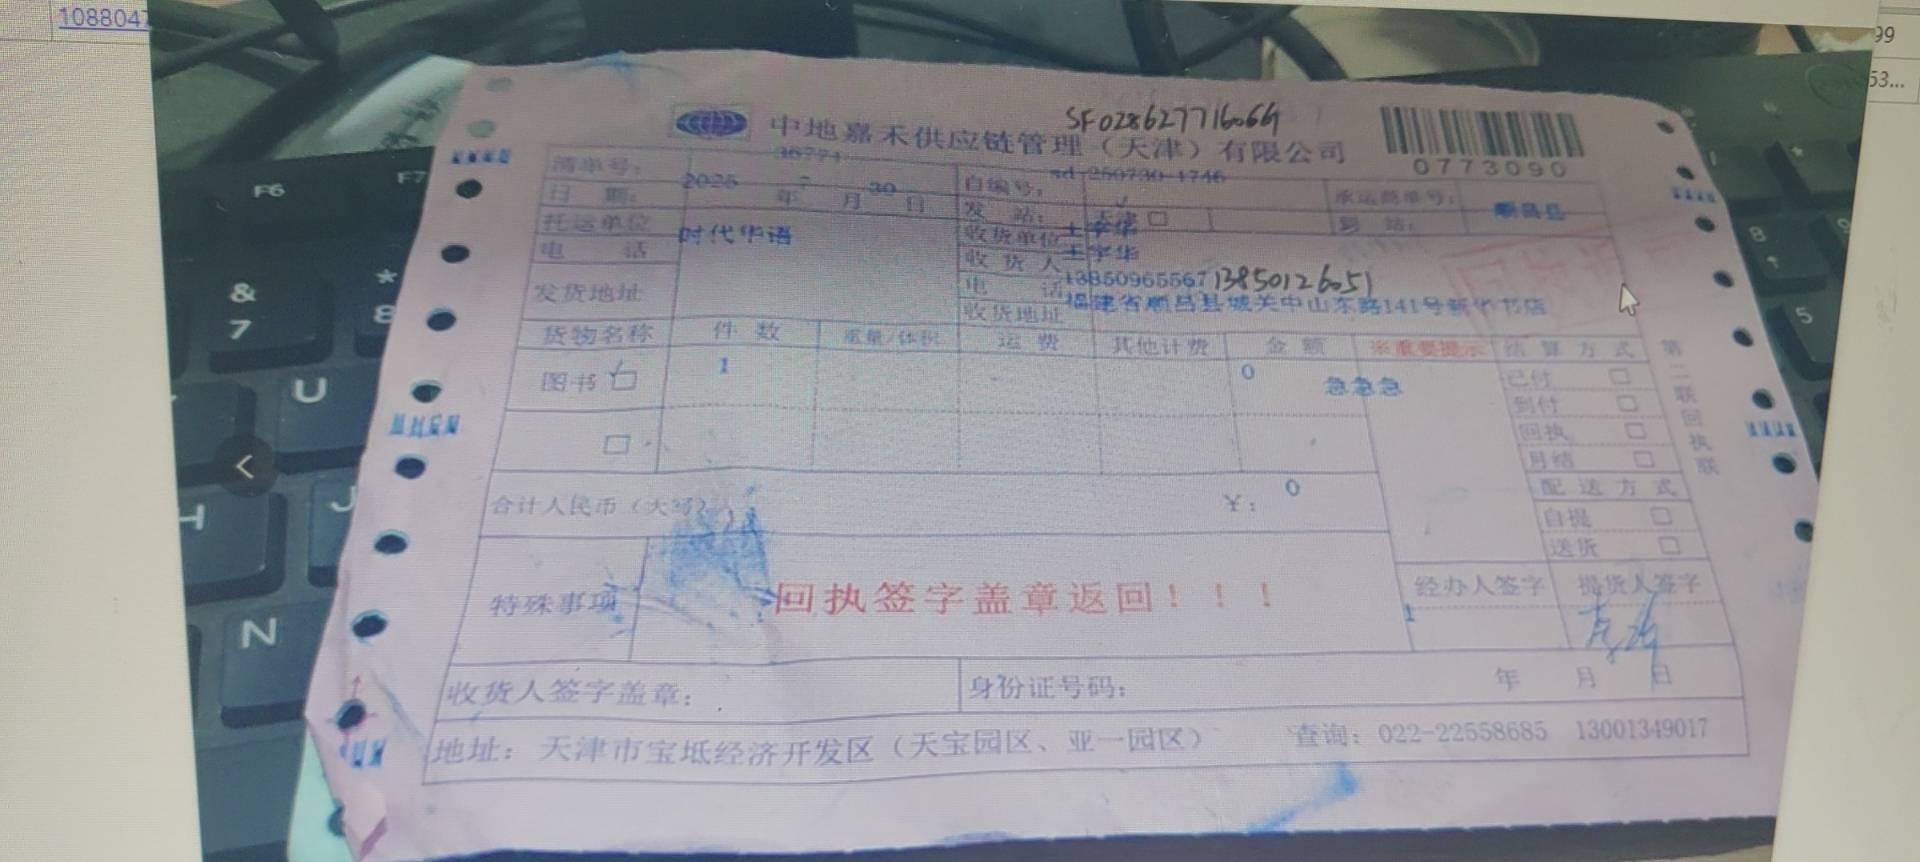 1088047
99
53...
F6
F7
&
7
*
8
U
H
J
N
8
9
5
SF0286277160664
中地嘉禾供应链管理（天津）有限公司
0773090
清单号：
36771
自编号：
sd-250730-1746
承运商单号：
日 期：
2025 年 7 月 30 日
发 站：
天津 □
到 站：
顺昌县
托运单位
时代华语
收货单位
王宇华
电 话
收 货 人
王宇华
发货地址
电 话
13850965567 13850126051
收货地址
福建省顺昌县城关中山东路141号新华书店
货物名称 件 数 重量/体积 运 费 其他计费 金 额 ※重要提示 结 算 方 式
图书 □
1
0
急急急
已付 □
到付 □
回执 □
月结 □
□
配 送 方 式
自提 □
送货 □
第二联回执联
合计人民币（大写）
¥： 0
特殊事项
回执签字盖章返回！！！
经办人签字
提货人签字
1
收货人签字盖章：
身份证号码：
年 月 日
地址：天津市宝坻经济开发区（天宝园区、亚一园区）
查询：022-22558685 13001349017